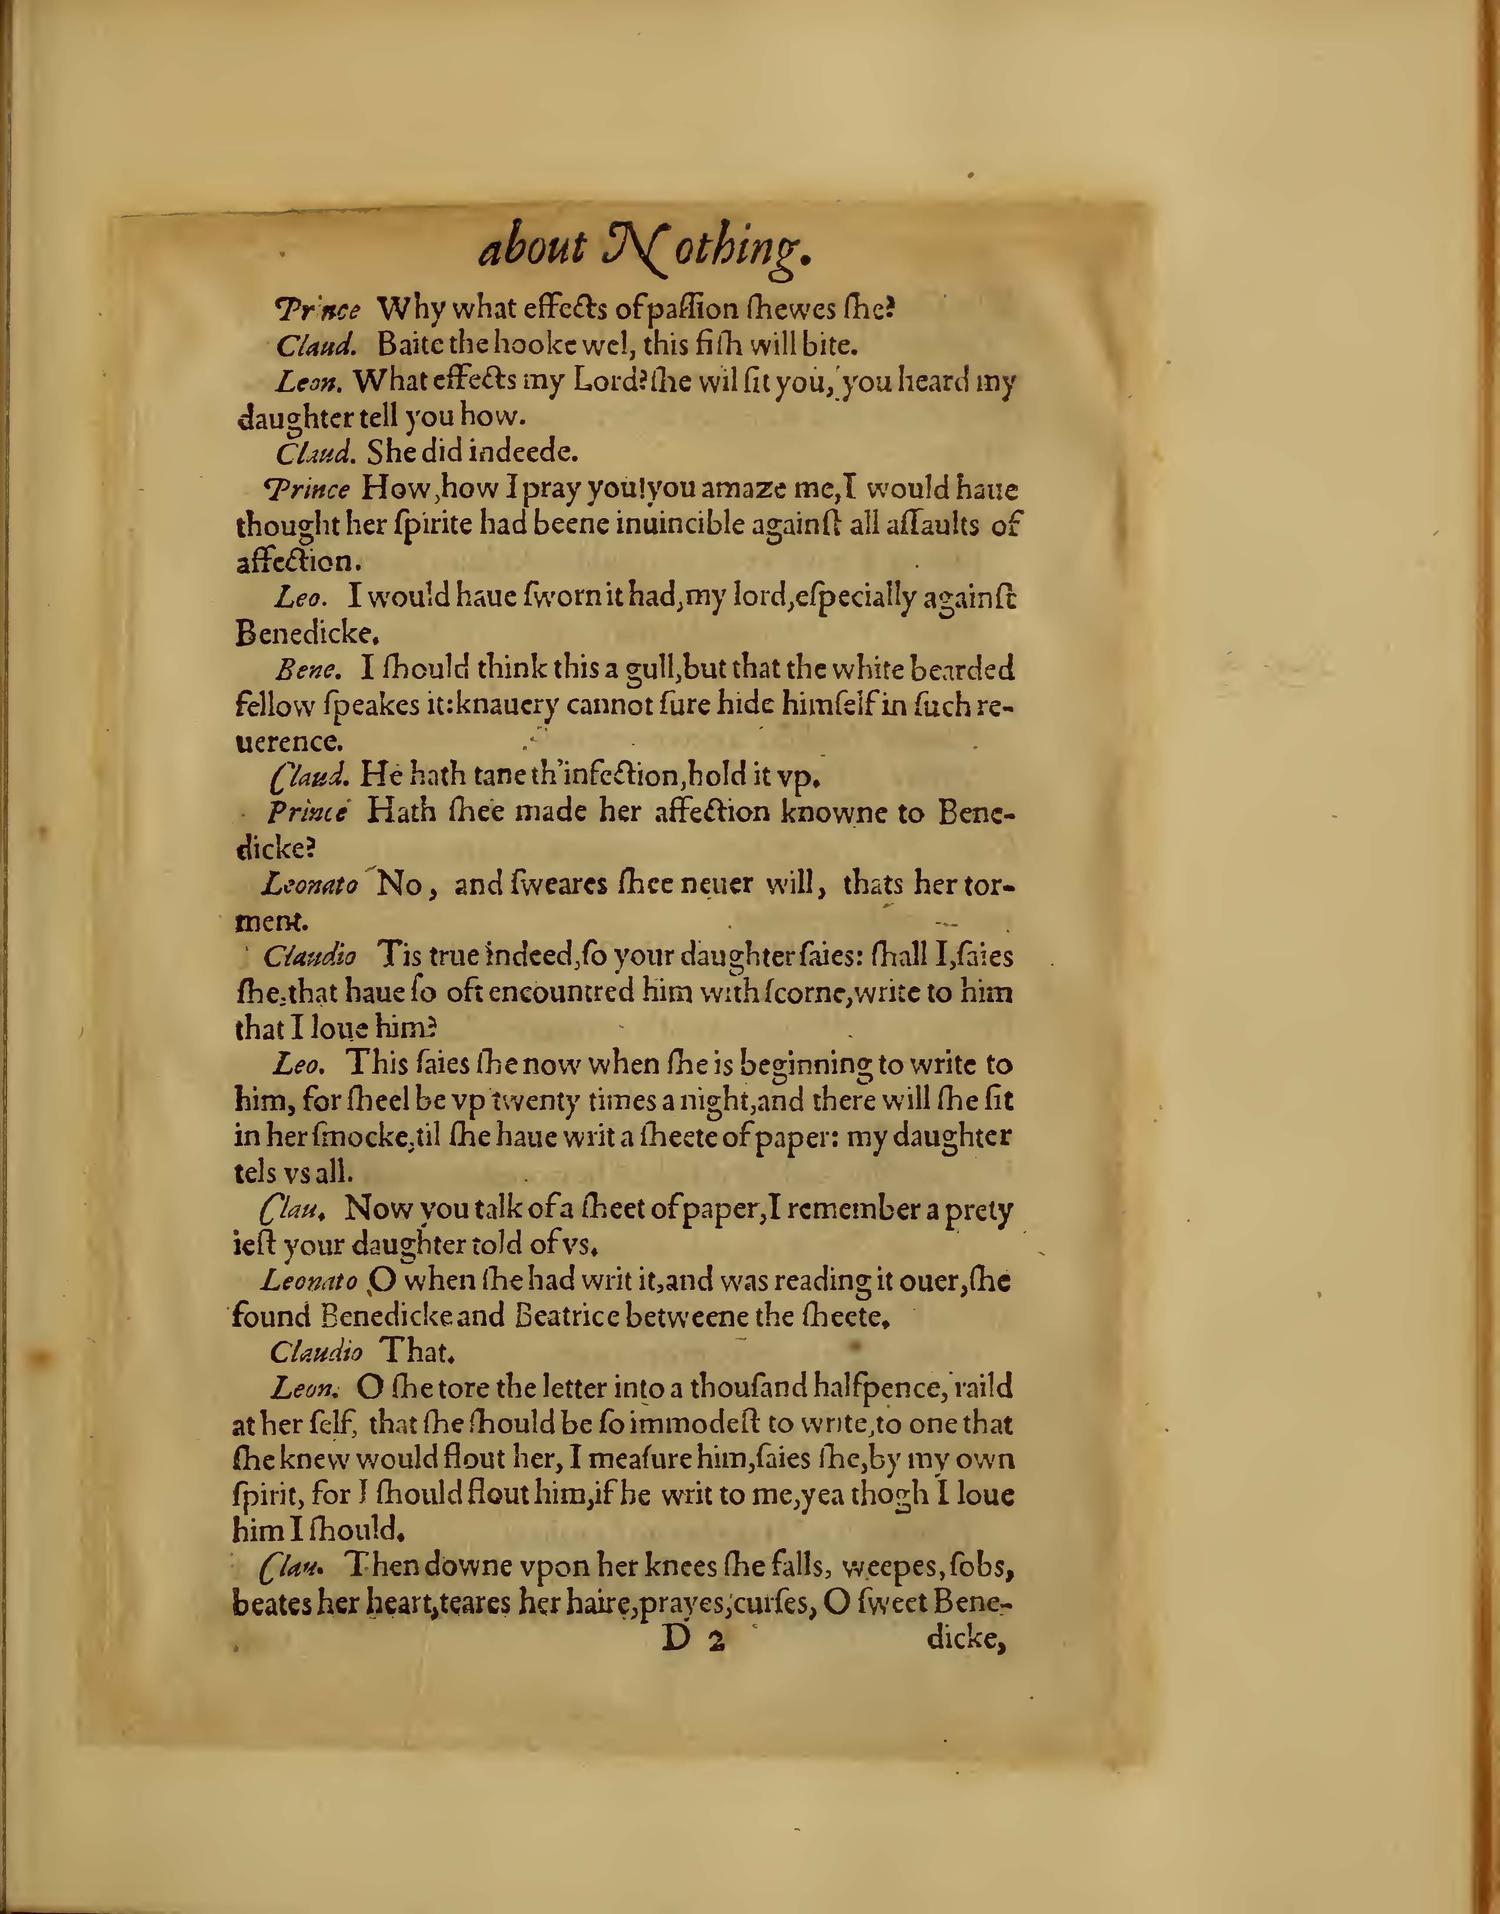 about Nothing.
Prince Why what effects of paſſion ſhewes ſhe?
Claud. Baite the hooke wel, this fiſh will bite.
Leon. What effects my Lord? ſhe wil ſit you, you heard my
daughter tell you how.
Claud. She did indeede.
Prince How, how I pray you! you amaze me, I would haue
thought her ſpirite had beene inuincible againſt all aſſaults of
affection.
Leo. I would haue ſworn it had, my lord, eſpecially againſt
Benedicke.
Bene. I ſhould think this a gull, but that the white bearded
fellow ſpeakes it: knauery cannot ſure hide himſelf in ſuch re-
uerence.
Claud. He hath tane th'infection, hold it vp.
Prince Hath ſhee made her affection knowne to Bene-
dicke?
Leonato No, and ſweares ſhee neuer will, thats her tor-
ment.
Claudio Tis true indeed, ſo your daughter ſaies: ſhall I, ſaies
ſhe, that haue ſo oft encountred him with ſcorne, write to him
that I loue him?
Leo. This ſaies ſhe now when ſhe is beginning to write to
him, for ſheel be vp twenty times a night, and there will ſhe ſit
in her ſmocke, til ſhe haue writ a ſheete of paper: my daughter
tels vs all.
Clau. Now you talk of a ſheet of paper, I remember a prety
ieſt your daughter told of vs.
Leonato O when ſhe had writ it, and was reading it ouer, ſhe
found Benedicke and Beatrice betweene the ſheete.
Claudio That.
Leon. O ſhe tore the letter into a thouſand halfpence, raild
at her ſelf, that ſhe ſhould be ſo immodeſt to write, to one that
ſhe knew would flout her, I meaſure him, ſaies ſhe, by my own
ſpirit, for I ſhould flout him, if he writ to me, yea thogh I loue
him I ſhould.
Clau. Then downe vpon her knees ſhe falls, weepes, ſobs,
beates her heart, teares her haire, prayes, curſes, O ſweet Bene-
D 2 dicke,